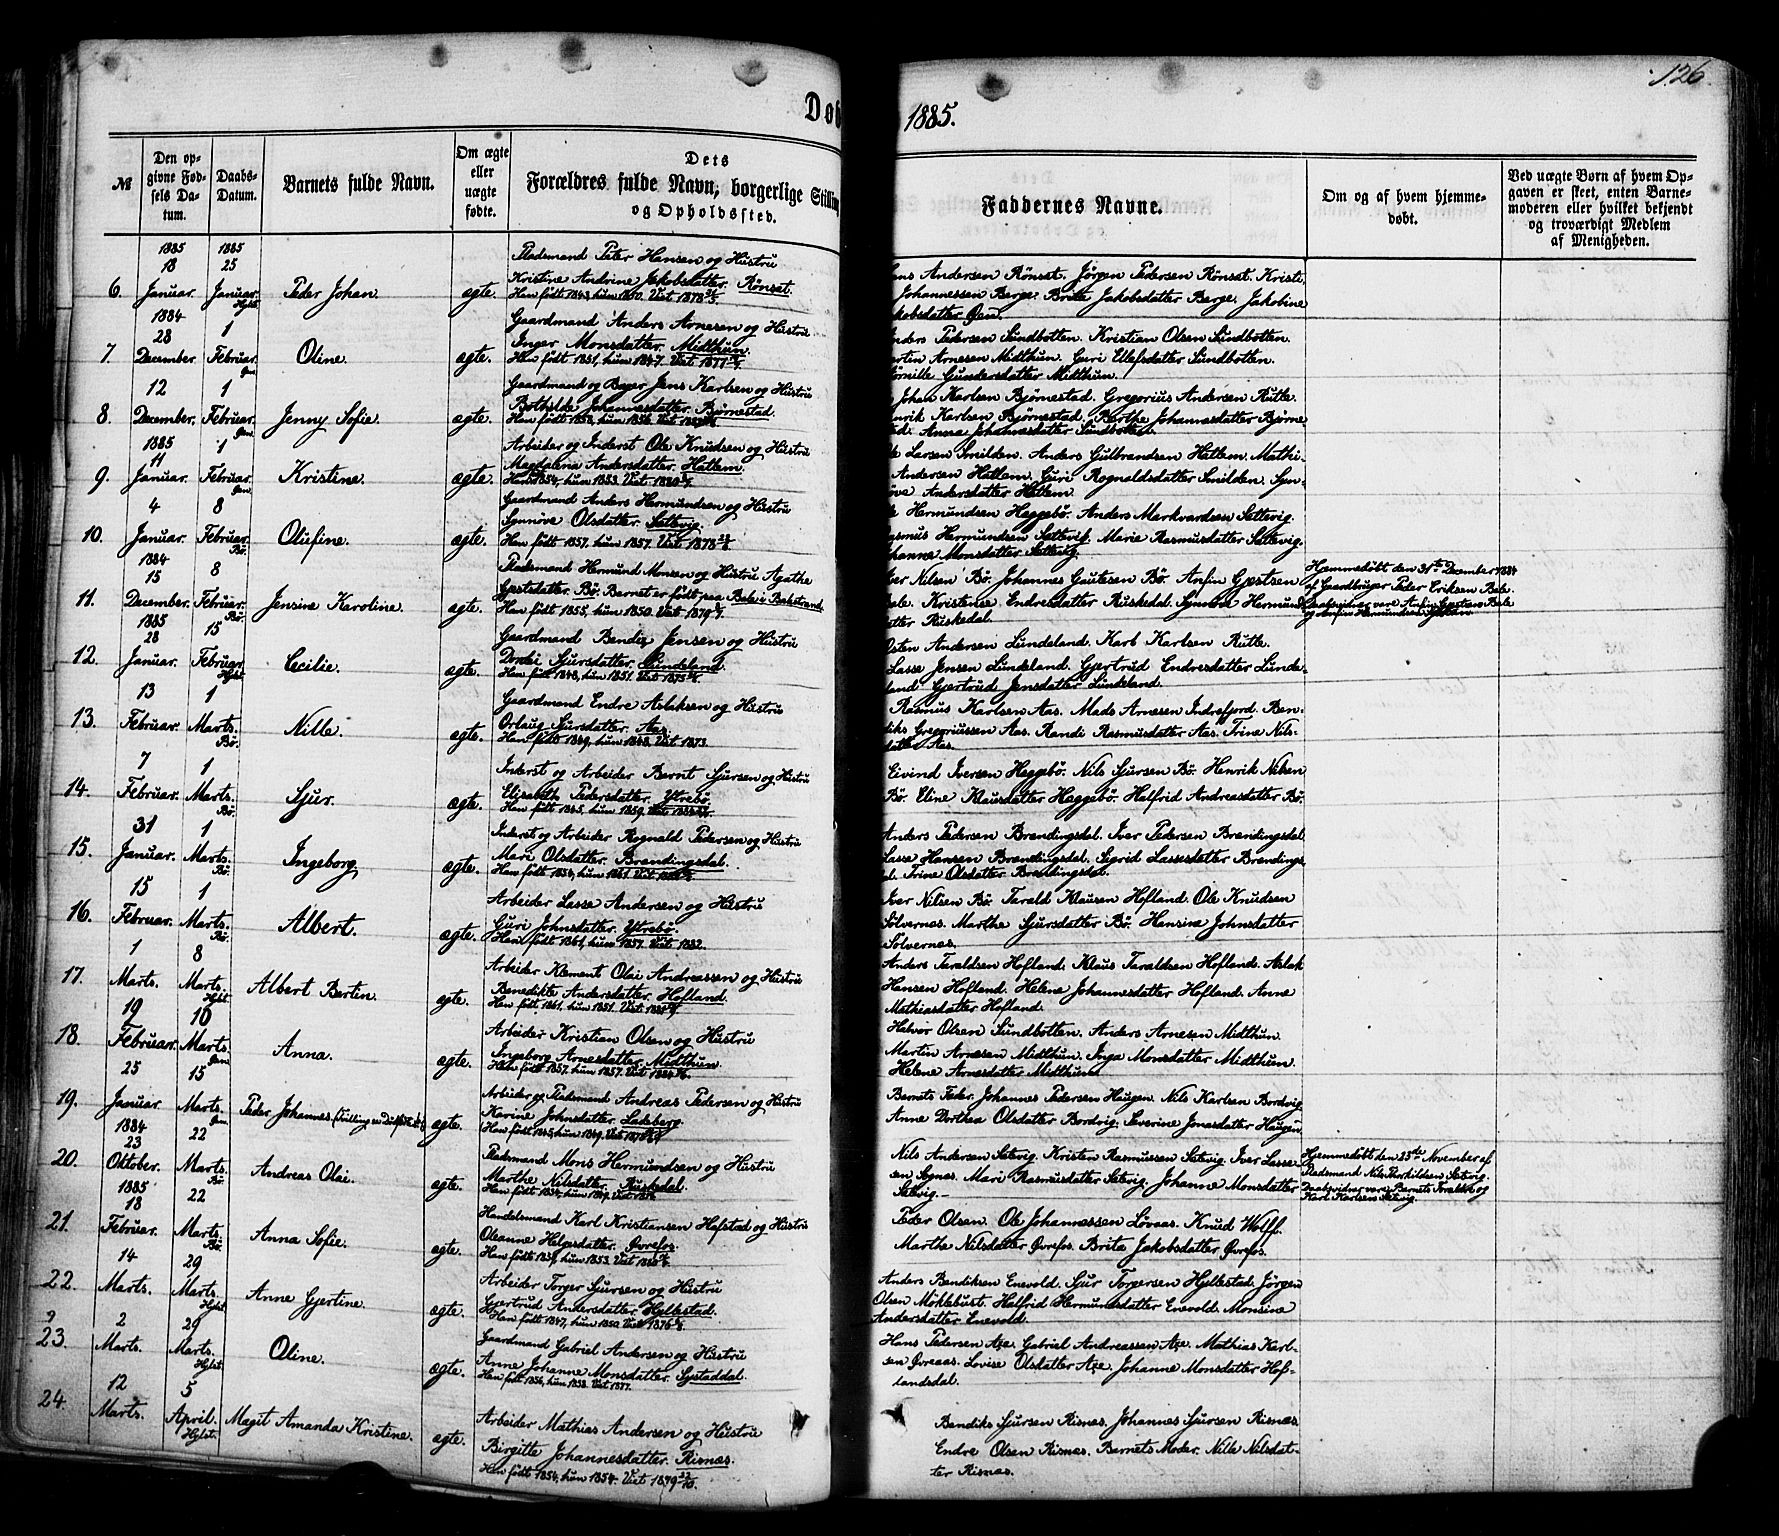 126
Døb
1885.
№
Den opgivne Fødsels Datum.
Daabs-Datum.
Barnets fulde Navn.
Om ægte eller uægte fødte.
Dets Forældres fulde Navn, borgerlige Stilling og Opholdssted.
Faddernes Navne.
Om og af hvem hjemmedøbt.
Ved uægte Børn af hvem Opgaven er skeet, enten Barnemoderen eller hvilket bekjendt og troværdigt Medlem af Menigheden.
6. 1885 18 Januar. 1885 25 Januar. Hylst. Peder Johan. ægte.
Pladsmand Peter Hansen og Hustru
Kristine Andrine Jakobsdatter. Rønset.
Han født 1843, hun 1850. Viet 1878
Andersen Rønset. Jørgen Pedersen Rønset. Kristi
Johannessen Berge. Brita Jakobsdatter Berge. Jakobine
7. 1884 28 December. 1 Februar. Oline. ægte.
Gaardmand Anders Arnesen og Hustru
Inger Monsdatter. Midthun.
Han født 1851, hun 1847. Viet 1877
Pedersen Sundbotten. Kristian Olsen Sundbotten.
Arnesen Midthun. Guri Ellefsdatter Sundbotten.
Gundersdatter Midthun.
8. 12 December. 1 Februar. Jenny Sofie. ægte.
Gaardmand og Bager Jens Karlsen og Hustru
Bothilde Johannesdatter. Bjørnestad.
Johan Karlsen Bjørnestad. Gregorius Andersen Rutle.
Karlsen Bjørnestad. Berthe Johannesdatter Bjørne
Anna Johannesdatter Sundbotten.
9. 1885 11 Januar. 1 Februar. Kristine. ægte.
Arbeider og Inderst Ole Knudsen og Hustru
Magdalena Andersdatter. Hatlem.
Han født 1854, hun 1853. Viet 1880
Larsen Smilden. Anders Gulbrandsen Hatlem. Mathi-
Andersen Hatlem. Guri Rognaldsdatter Smilden. Syn-
Andersdatter Hatlem.
10. 4 Januar. 8 Februar. Bø. Olufine. ægte.
Gaardmand Anders Hermundsen og Hustru
Synnøve Olsdatter. Settevig.
Han født 1857, hun 1857. Viet 1878
Hermundsen Heggebø. Anders Markvardsen Settevig.
Hermundsen Settevig. Marie Rasmusdatter Settevig.
Monsdatter Settevig.
11. 1884 15 December. 8 Februar. Bø. Jensine Karoline. ægte.
Pladsmand Hermund Monsen og Hustru Agathe
Gjestsdatter. Bø. Barnet er født paa Bele i Balestrand.
Han født 1855, hun 1850. Viet 1879
Nilsen Bø. Johannes Gautesen Bø. Anfin Gjestsen
Bele. Kristense Endresdatter Ruskedal. Synneva Hermunds
Ruskedal.
Hjemmedøbt den 31te December 1884
af Gaardbruger Peder Eriksen Bele.
12. 1885 28 Januar. 15 Februar. Hylst. Cecilie. ægte.
Gaardmand Bendix Jensen og Hustru
Dordei Sjursdatter. Lundeland.
Han født 1848, hun 1851. Viet 1875
Andersen Lundeland. Karl Karlsen Rutle.
Lasse Jensen Lundeland. Gjertrud Endresdatter Lunde-
land. Gjertrud Jensdatter Lundeland.
13. 13 Februar. 1 Marts. Bø. Nille. ægte.
Gaardmand Endre Aslaksen og Hustru
Orlaug Sjursdatter. Aas.
Han født 1849, hun 1848. Viet 1873.
Rasmus Karlsen Aas. Mads Arnesen Indrefjord. Ben-
diks Gregoriussen Aas. Randi Rasmusdatter Aas. Trine Nils-
datter Aas.
14. 7 Februar. 1 Marts. Bø. Sjur. ægte.
Inderst og Arbeider Bernt Sjursen og Hustru
Elizabeth Pedersdatter. Ytrebø.
Eivind Iversen Heggebø. Nils Sjursen Bø. Henrik Nilsen
Bø. Eline Klausdatter Heggebø. Halfrid Andreasdatter Bø.
15. 31 Januar. 1 Marts. Bø. Ingeborg. ægte.
Inderst og Arbeider Rognald Pedersen og Hustru
Mari Olsdatter. Brendingsdal.
Anders Pedersen Brendingsdal. Iver Pedersen Brendingsdal
Lasse Hansen Brendingsdal. Sigrid Lassesdatter Brendings
Trine Olsdatter Brendingsdal.
16. 15 Februar. 1 Marts. Bø. Albert. ægte.
Arbeider Lasse Andersen og Hustru
Guri Johnsdatter. Ytrebø.
Han født 1861, hun 1857. Viet 1882.
Iver Nilsen Bø. Tarald Klausen Hofland. Ole Knudsen
Solvernes. Marthe Sjursdatter Bø. Hansine Johnsdatter
Solvernes.
17. 1 Marts. 8 Marts. Hylst. Albert Bertin. ægte.
Arbeider Klement Olai Andreassen og Hustru
Benedikte Andersdatter. Hofland.
Anders Taraldsen Hofland. Klaus Taraldsen Hofland. Aslak
Hansen Hofland. Helene Johannesdatter Hofland. Anne
Mathiasdatter Hofland.
18. 19 Februar. Marts. Anna. ægte.
Arbeider Kristian Olsen og Hustru
Ingeborg Arnesdatter. Midthun.
Halvor Olsen Sundbotten. Anders Arnesen Midthun.
Martin Arnesen Midthun. Inga Monsdatter Midthun.
Helene Arnesdatter Midthun.
19. 25 Januar. 15 Marts. Peder Johannes ægte.
Arbeider og Pladsmand Andreas Pedersen og Hustru
Karine Johnsdatter. Ladeberg.
Bernets Fader. Johannes Pedersen Haugen. Nils Karlsen Bordvig
Anne Dorthea Olsdatter Bordvig. Severine Jonasdatter Haugen.
20. 1884 23 Oktober. 22 Marts. Bø. Andreas Olai. ægte.
Pladsmand Mons Hermundsen og Hustru
Marthe Nilsdatter. Ruskedal.
Nils Andersen Setevig. Kristen Rasmussen Setevig. Iver Lasse-
sen Sognes. Mari Rasmusdatter Setevig. Johanne Monsdatter
Setevig.
Hjemmedøbt den 23de November af
Pladsmand Nils Thorkildsen Setevig.
Daabsvidner vare Barnets Forældre og
Karl Karlsen Setevig.
21. 1885 18 Februar. 22 Marts. Bø. Anna Sofie. ægte.
Handelsmand Karl Kristiansen Hofstad og Hustru
Oleanne Helgesdatter. Øvrefos.
Peder Olsen. Ole Johannessen Løvaas. Knud Wolff.
Marthe Nilsdatter Øvrefos. Brita Jakobsdatter Øvrefos.
22. 14 Marts. 29 Marts. Hylst. Anne Gjertine. ægte.
Arbeider Torger Sjursen og Hustru
Gjertrud Andersdatter. Hyllestad.
Han født 1847, hun 1850. Viet 1876
Anders Bendiksen Enevold. Sjur Torgersen Hyllestad. Jørgen
Olsen Møklebust. Halfrid Hermundsdatter Enevold. Monsine
Andersdatter Enevold.
23. 2 Marts. 29 Marts. Hylst. Oline. ægte.
Gaardmand Gabriel Andersen og Hustru
Anne Johanne Monsdatter. Systaddal.
Hans Pedersen Axe. Gabriel Andreassen Axe. Mathias Karl-
sen Øvreaas. Lovise Olsdatter Axe. Johanne Monsdatter Hof-
landsdal.
24. 12 Marts. 5 April. Hylst. Magit Amanda Kristine. ægte.
Arbeider Mathias Andersen og Hustru
Birgitte Johannesdatter. Risnæs.
Han født 1854, hun 1854. Viet 1879
Bendiks Sjursen Risnæs. Johannes Sjursen Risnæs
Endre Olsen Risnæs. Barnets Moder. Nille Nilsdat-
ter Risnæs.